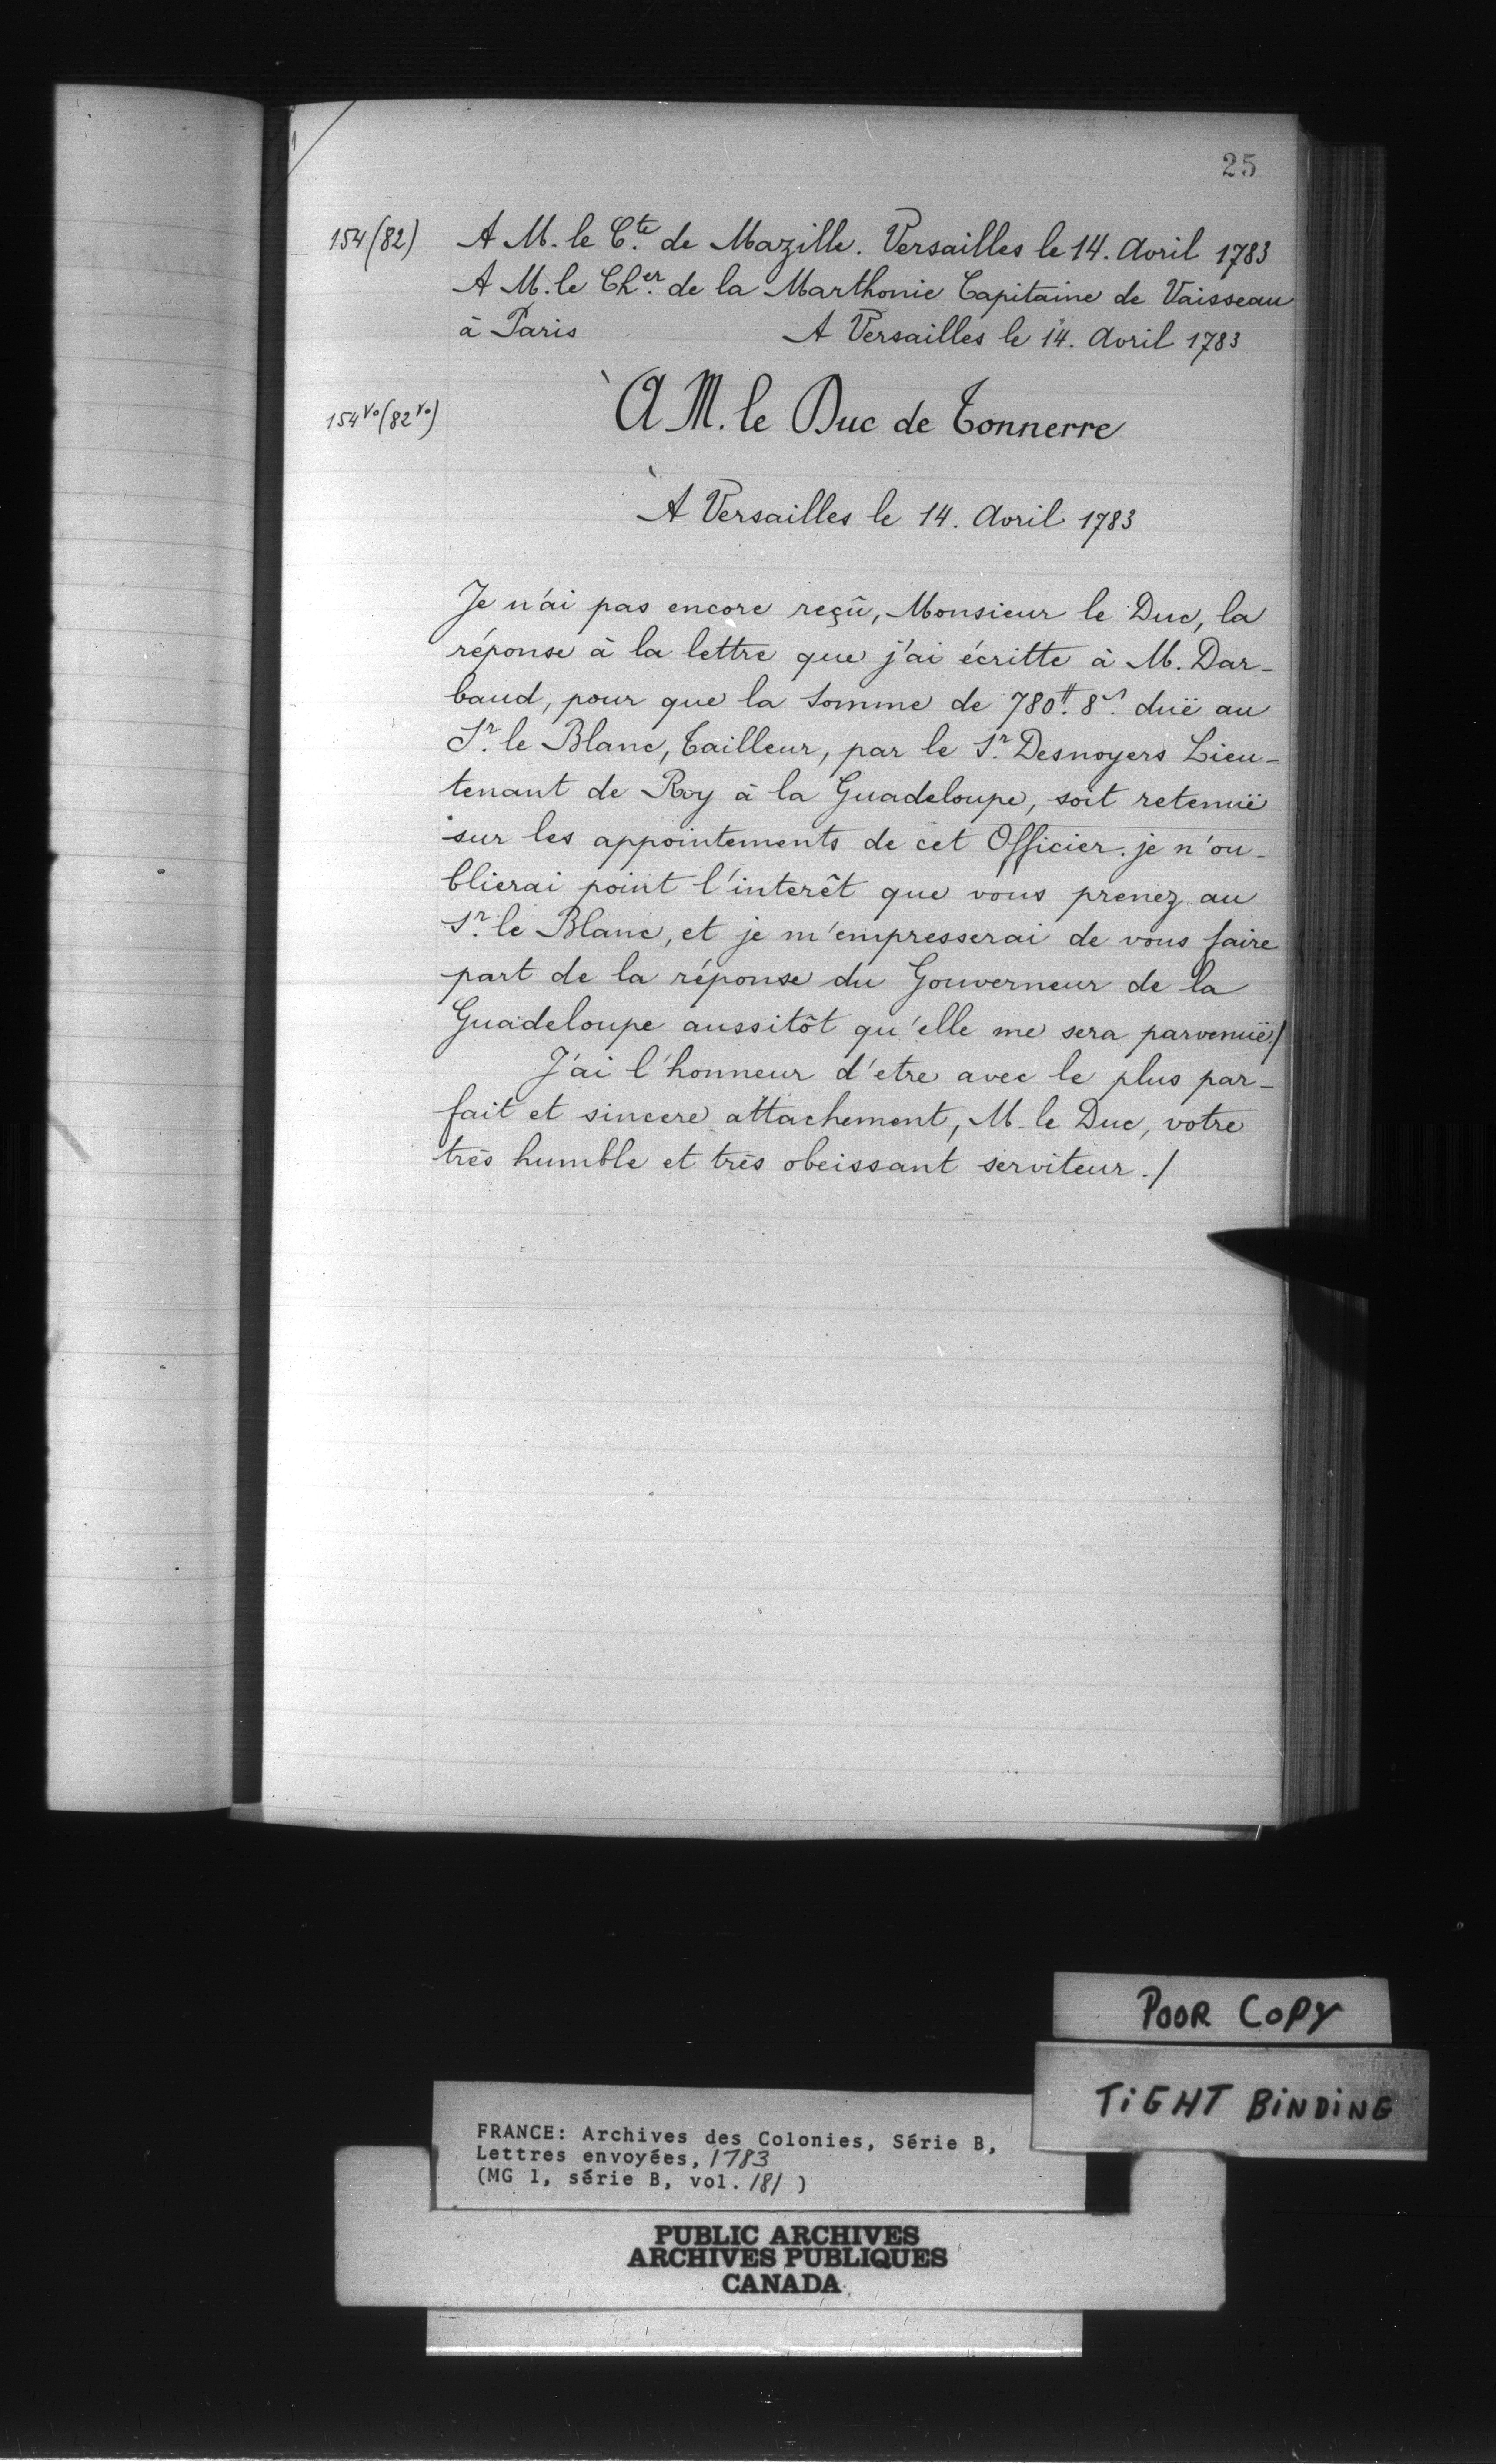 25
154 (82) A M. le C.te de Mazille. Versailles le 14. Avril 1783
A M. le Ch.er de la Marthonie Capitaine de Vaisseau
à Paris A Versailles le 14. Avril 1783
154 vo (82 vo) À M. le Duc de Tonnerre
À Versailles le 14. Avril 1783
Je n'ai pas encore reçû, Monsieur le Duc, la
réponse à la lettre que j'ai écritte à M. Dar-
baud, pour que la Somme de 780.tt 8.s düe au
S.r le Blanc, Tailleur, par le S.r Desnoyers Lieu-
tenant de Roy à la Guadeloupe, soit retenuë
sur les appointements de cet Officier. je n'ou-
blierai point l'interêt que vous prenez au
S.r le Blanc, et je m'empresserai de vous faire
part de la réponse du Gouverneur de la
Guadeloupe aussitôt qu'elle me sera parvenuë/
J'ai l'honneur d'etre avec le plus par-
fait et sincere attachement, M. le Duc, votre
très humble et très obeissant serviteur./
POOR COPY
TiGHT BiNDiNG
FRANCE: Archives des Colonies, Série B,
Lettres envoyées, 1783
(MG 1, série B, vol. 181 )
PUBLIC ARCHIVES
ARCHIVES PUBLIQUES
CANADA